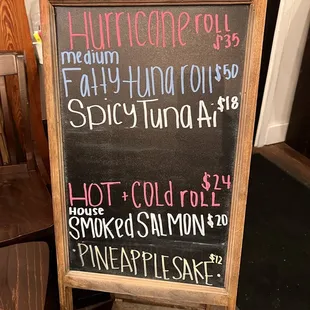 Hurricane roll $35
medium
Fatty tuna roll $50
Spicy Tuna Ai $18
HOT + COLd roll $24
House
SMOKed SALMON $20
·PINEAPPLE SAKE· $12